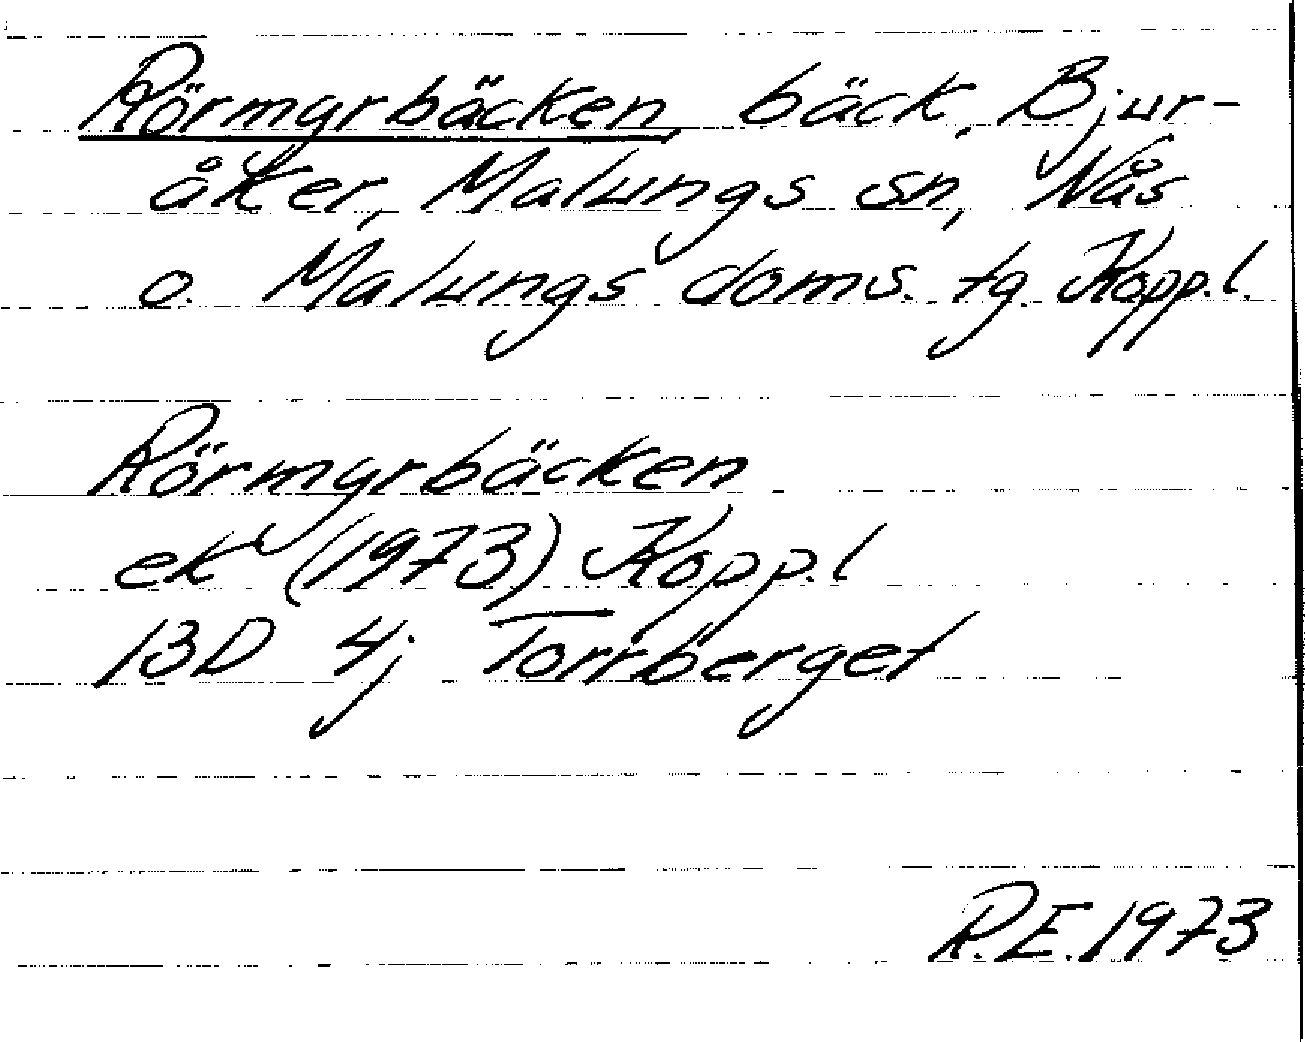 Rörmyrbäcken, bäck, Bjur-
åker, Malungs sn, Nås
o. Malungs doms. tg. Kopp.l.
Rörmyrbäcken
ek (1973) Kopp.l
13D 4j Torrberget
R.E. 1973